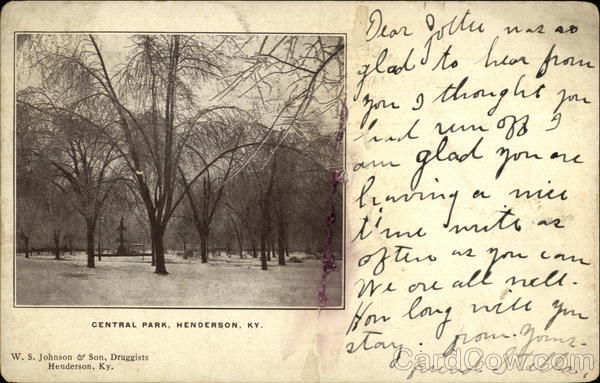 CENTRAL PARK, HENDERSON, KY.
W. S. Johnson & Son, Druggists
Henderson, Ky.
Dear Lottie was so
glad to hear from
you I thought you
had run off I
am glad you are
having a nice
time write as
often as you can
We are all well.
How long will you
stay. from yours.
CardCow.com